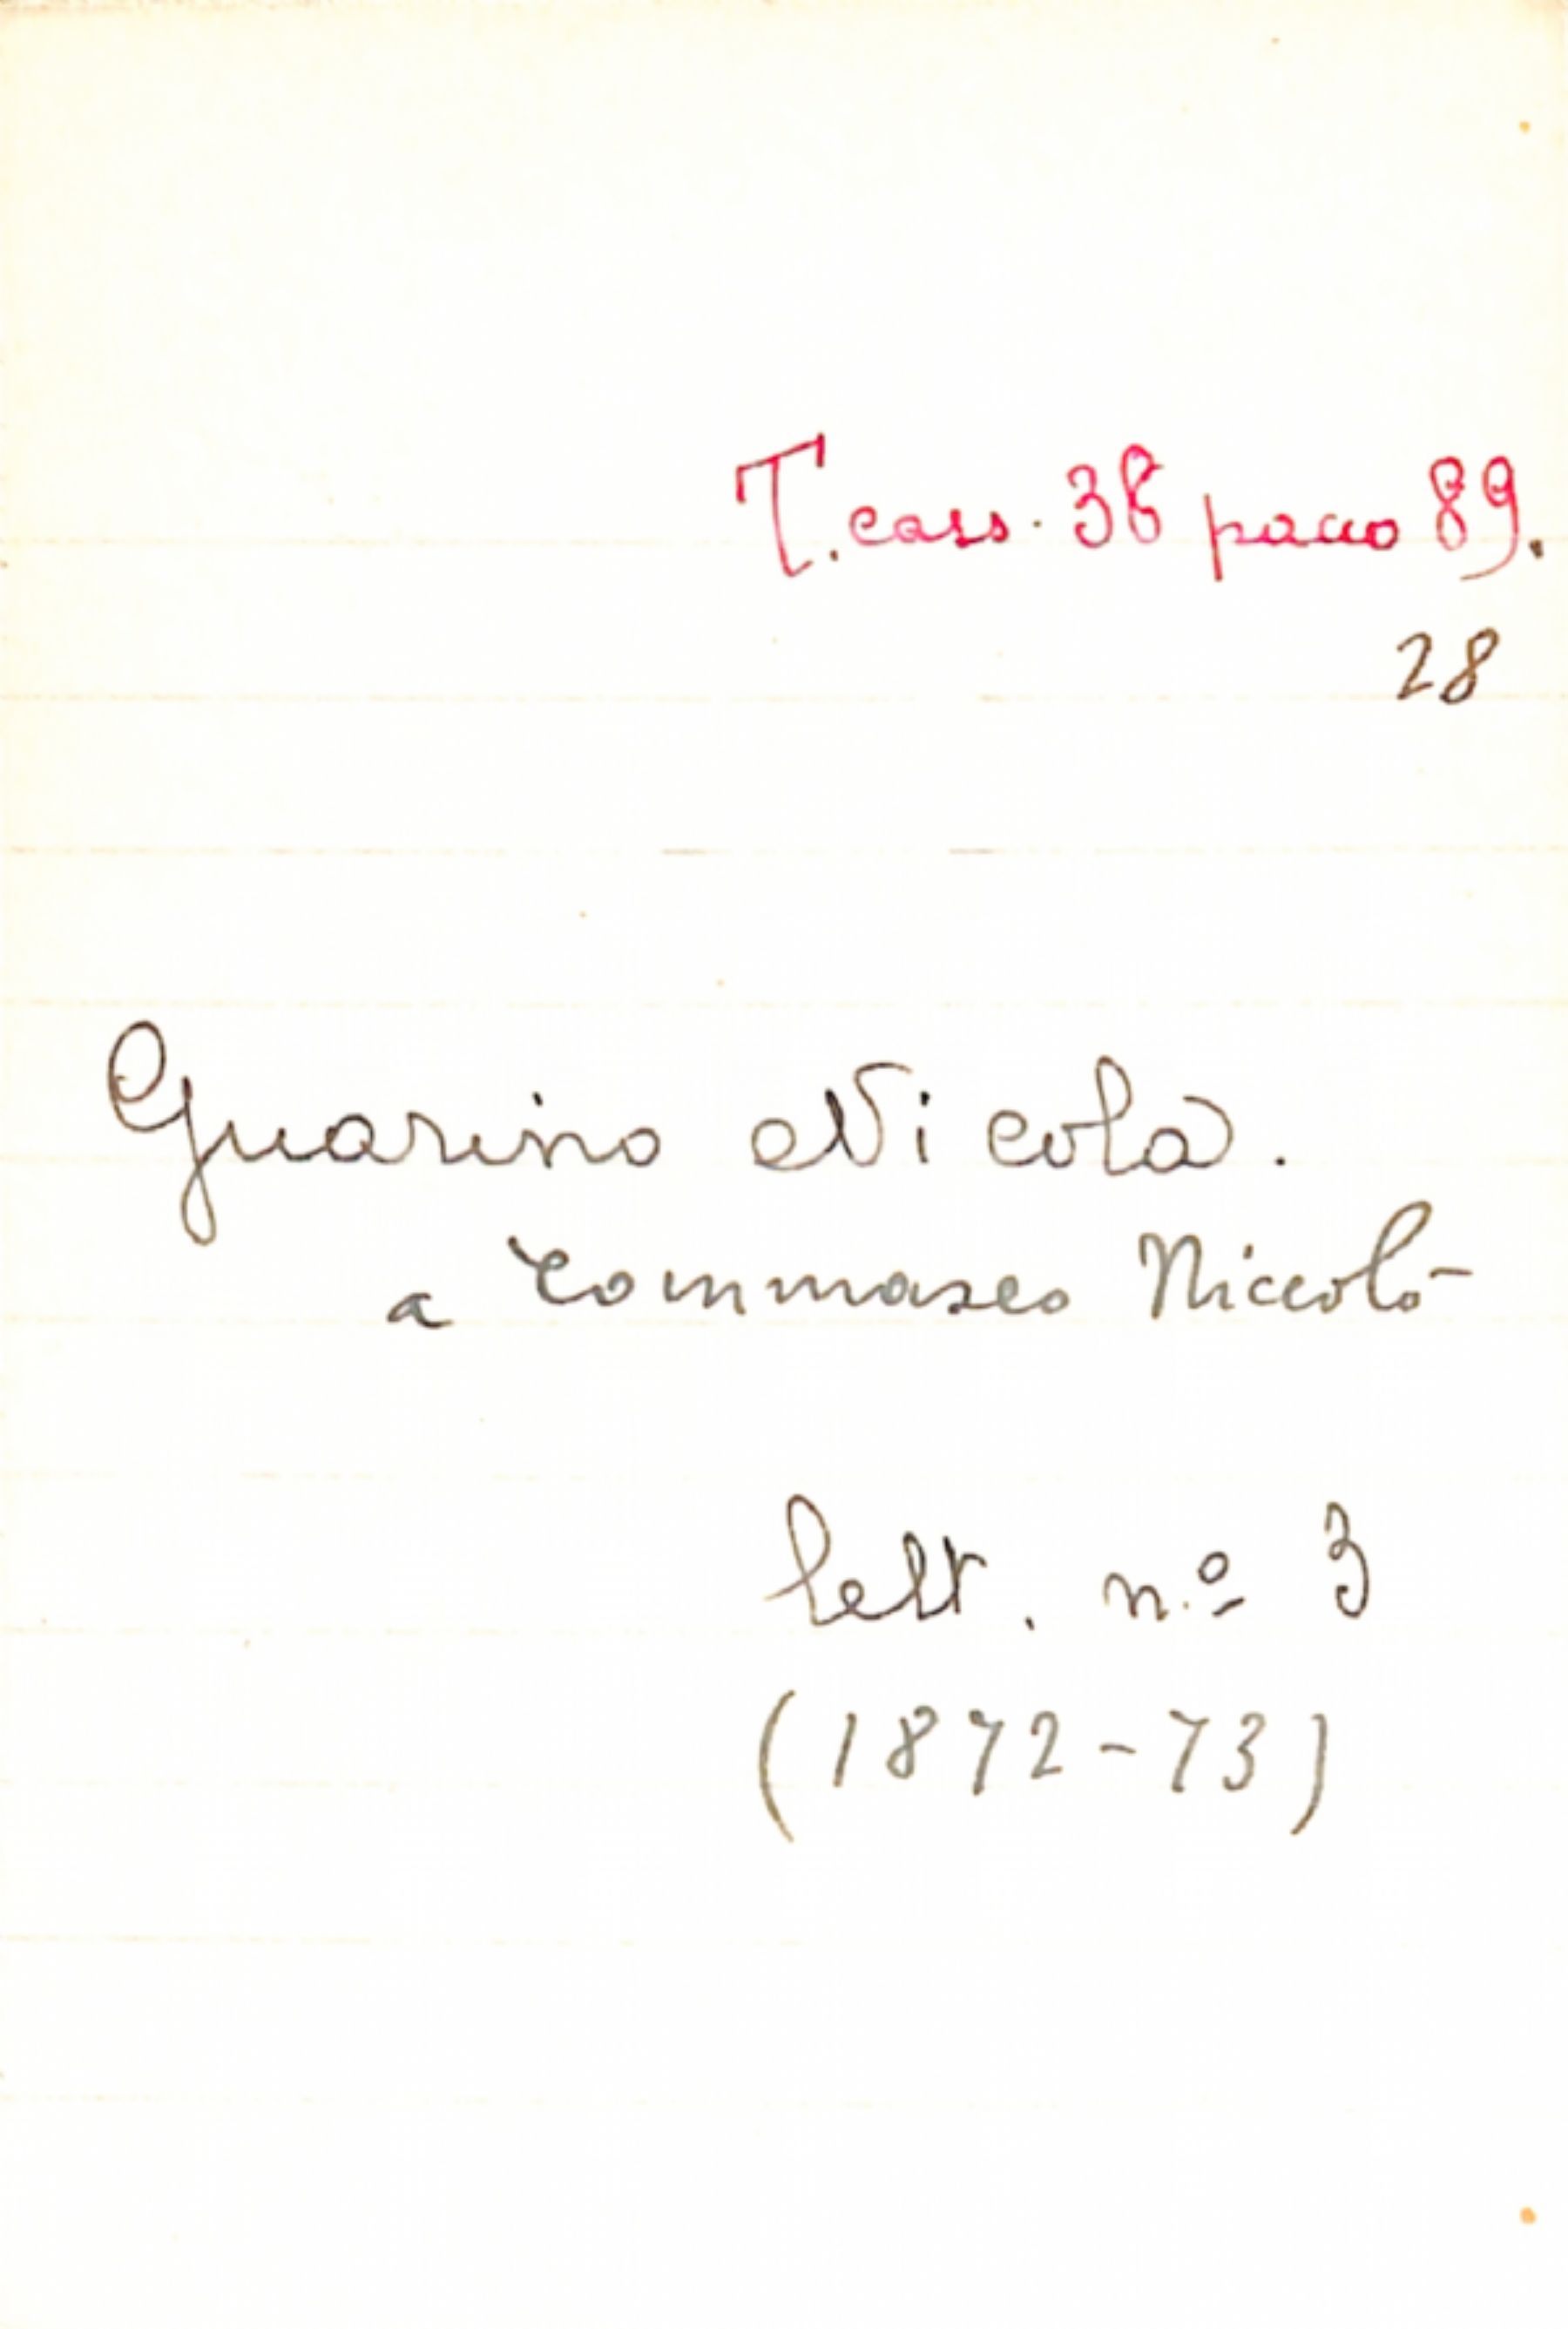 T. cass. 38 pacco 89.
28
Guarino Nicola.
a Tommaseo Niccolò
lett. n.º 3
(1872-73)